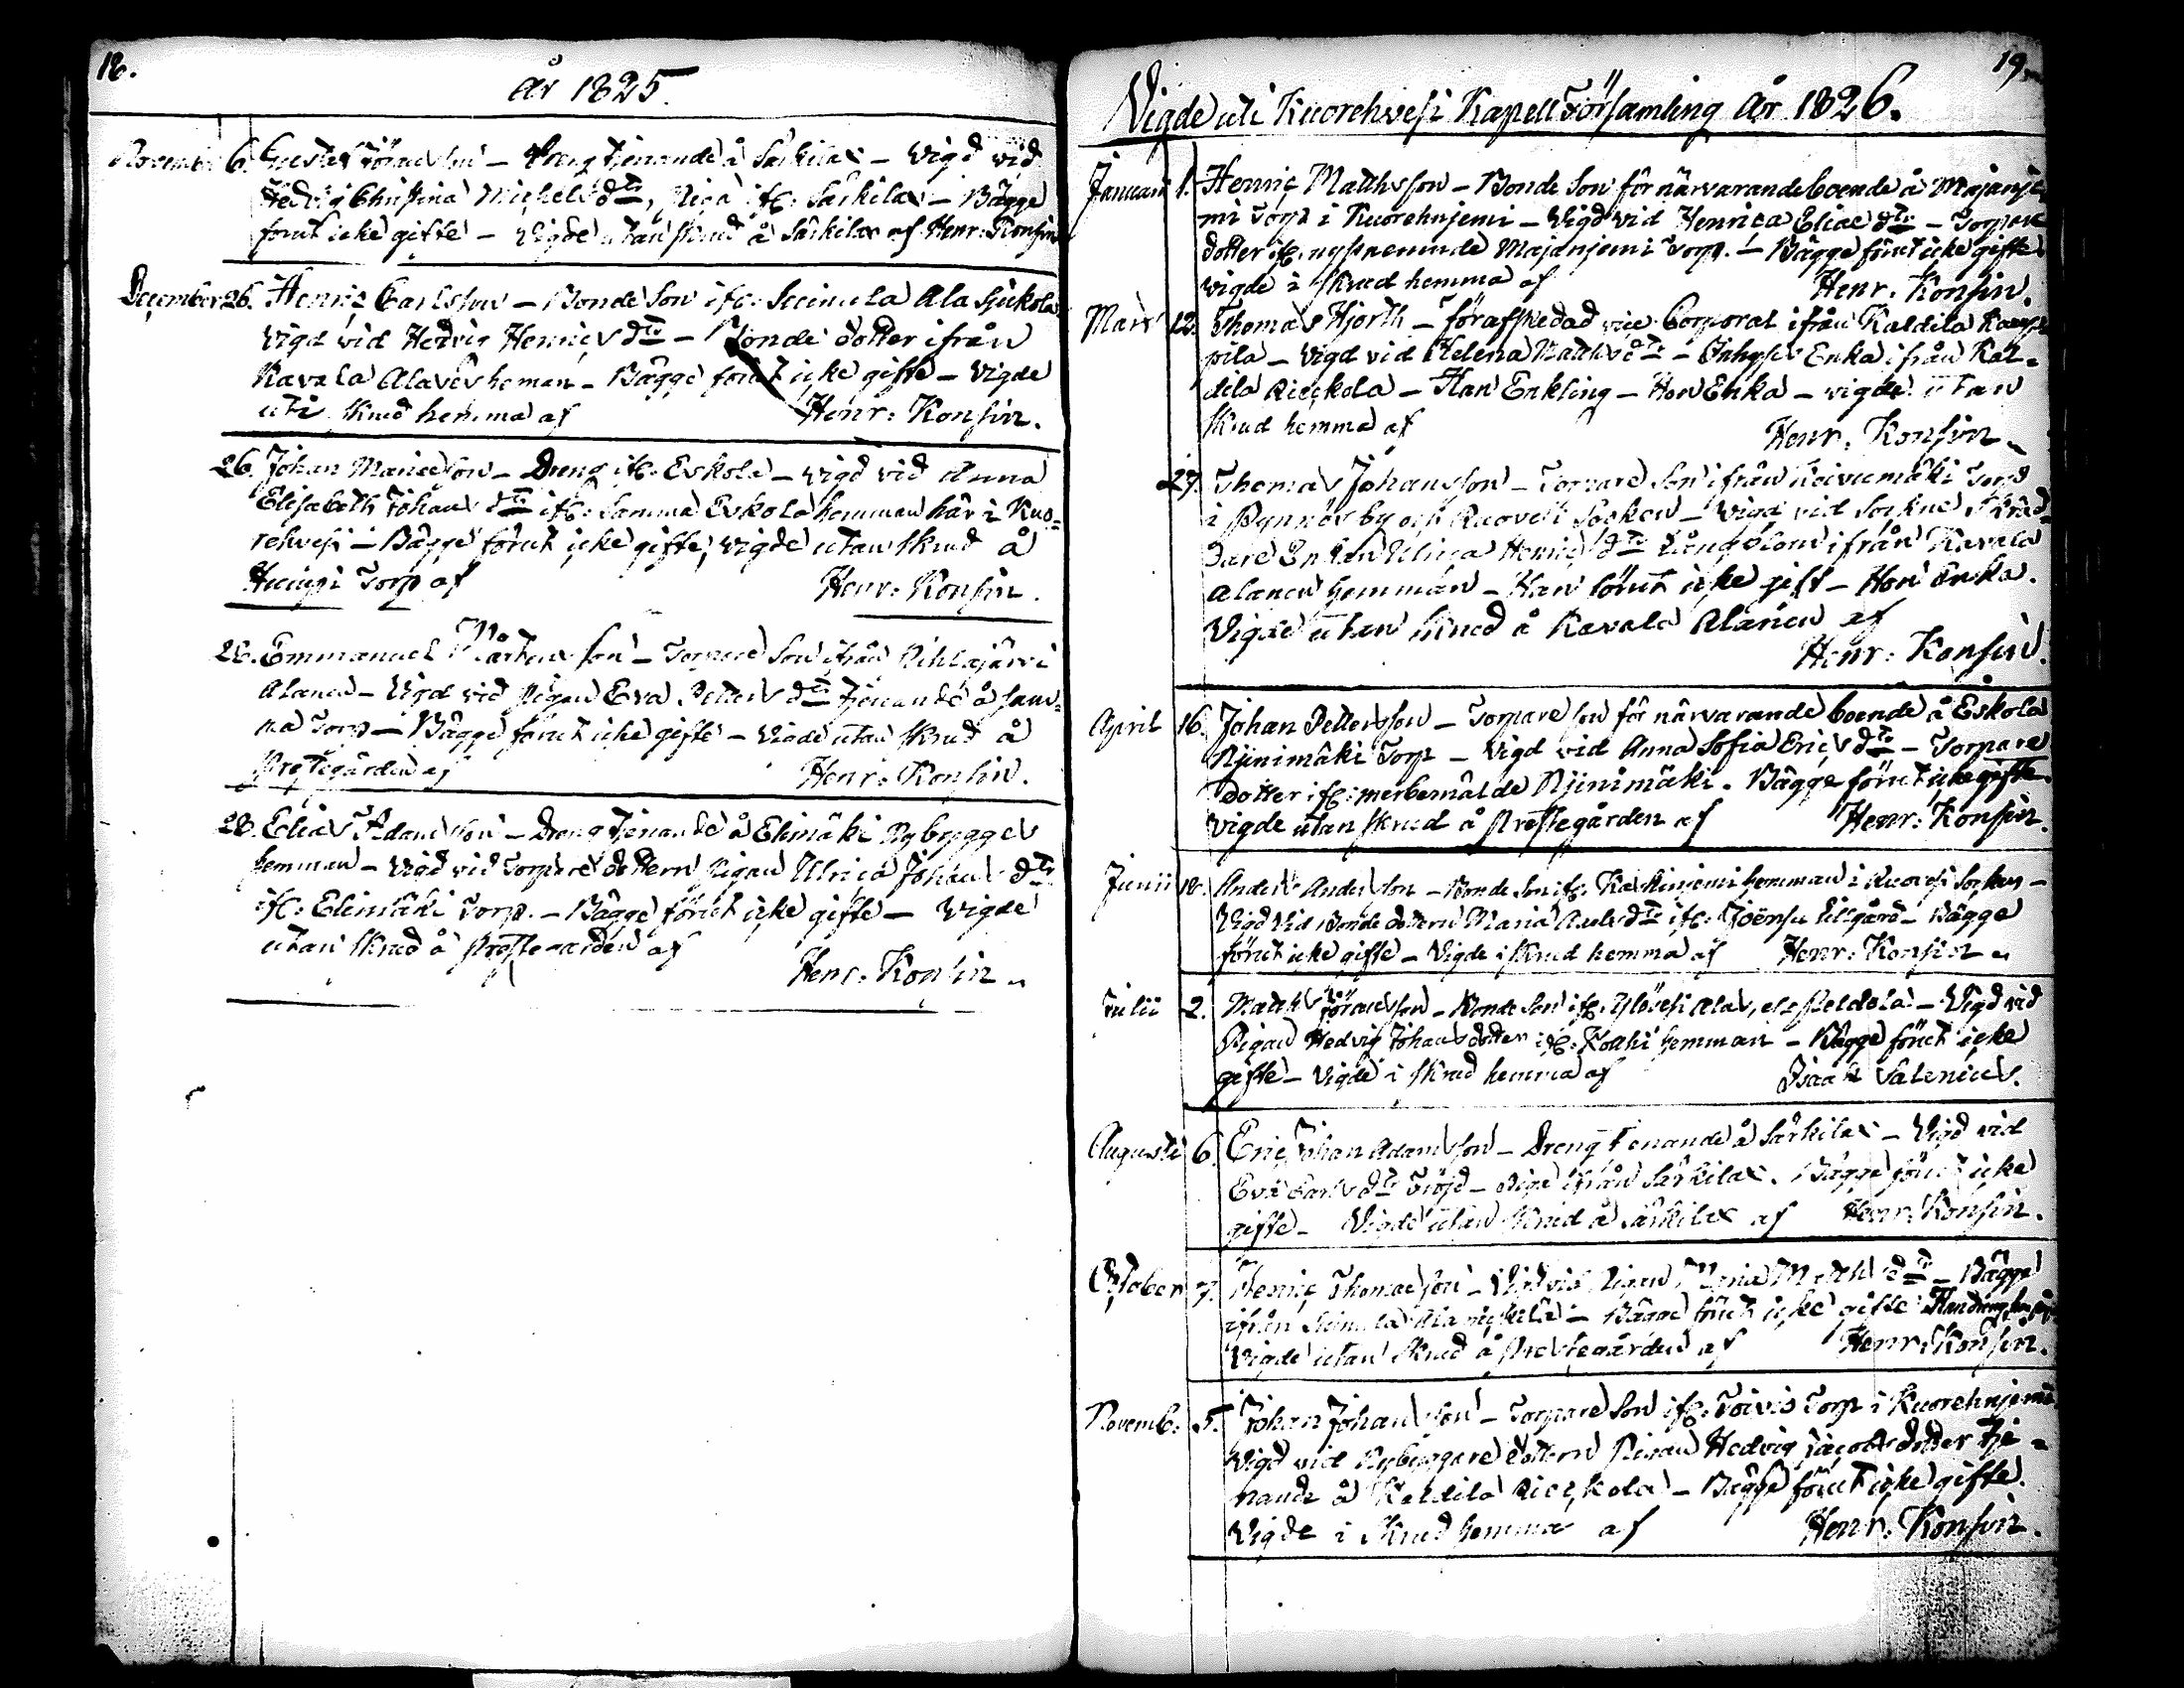 18.
År 1825.
November 6. Gustaf Göransson - Dreng tjenande å Särkilax - Vigd vid
Hedvig Christina Michelsdtr, Piga ifr. Särkilax - Bägge
förut icke gifte - Vigde utan skrud å Särkilax af Henr: Konsin
December 26. Henric Carlsson - Bonde Son ifr. Suinula Ala Sjukola
Vigd vid Hedvig Henricsdtr - Bonde dotter ifrån
Kavala Alaves heman - Bägge förut icke gifte - Vigde
uti skrud hemma af Henr: Konsin.
26. Johan Mariæson - Dreng ifr. Eskola - vigd vid Anna
Elisabeth Johansdtr ifr. samma Eskola hemman här i Kuo-
rehvesi - Bägge förut icke gifte, vigde utan skrud å
Torp af Henr: Konsin.
26. Emmanuel Mårtensson - Torpare Son ifrån Pihlajärvi
Alanen - Vigd vid Pigan Eva Pettersdtr tjenande å sam-
ma Torp - Bägge förut icke gifte - Vigde utan skrud å
Prestegården af Henr: Konsin.
28. Elias Adamsson - Dreng tjenande å Elimäki Nybygges
hemman - Vigd vid Torpare dottern Pigan Ulrica Johansdtr
ifr: Elimäki Torp. - Bägge förut icke gifte - Vigde
utan skrud å Prestegården af
Henr: Konsin.
19.
Vigde uti Kuorehvesi Kapell Församling År 1826.
Januari 1. Henric Matthsson - Bonde Son för närvarande boende å Majanje-
mi Torp i Kuorehnjemi - Vigd vid Henrica Eliædtr - Torpare
dotter ifr. nyssnemnde Majanjemi Torp. - Bägge förut icke gifte
vigde i skrud hemma af Henr: Konsin.
Mars 12. Thomas Hjorth - förafskedad vice Corporal ifrån Kaldila
pila - Vigd vid Helena Matthsdtr - Enka ifrån Kal-
dila Rieckola - Han Enkling - Hon Enka - vigde utan
skrud hemma af
Henr: Konsin.
27. Thomas Johansson - Torpare Son ifrån Koivumäki Torp
i Pynnös by och Ruovesi Socken - Vigd vid Sockne Skräd-
dare Enkan Ulrica Henricsdtr Långblom ifrån Kavala
Alanen hemman - Han förut icke gift - Hon Enka.
Vigde utan skrud å Kavala Alanen af
Henr: Konsin.
April 16. Johan Pettersson - Torpare son för närvarande boende å Eskola
Njinimäki Torp - Vigd vid Anna Sofia Ericsdtr - Torpare
dotter ifr: merbemälde Njinimäki. Bägge förut icke gifte.
vigde utan skrud å Prestegården af Henr: Konsin.
Junii 18. Anders Andersson - Bonde Son ifr. hemman i Ruovesi Socken -
Vigd Vid Bonde dottern Maria Axelsdtr ifr. Joënsu Lillgård - Bägge
förut icke gifte - Vigde i skrud hemma af Henr: Konsin.
Julii 2. Matths Göransson - Bonde Son ifr. Ylövesi Alas, - Vigd vid
Pigan Hedvig Johansdotter ifr. Koski hemman - Bägge förut icke
gifte - Vigde i skrud hemma af Isaak Salenius.
Augusti 6. Eric Johan Adamsson - Dreng tjenande å Särkilax - Vigd vid
Eva Carlsdtr Fröjd - Piga ifrån Särkilax. Bägge förut icke
gifte - Vigde utan skrud å Särkilax af Henr: Konsin.
October 7. Henric Thomasson - Vigd vid Pigan Maria Matthsdtr - Bägge
ifrån Suinula - Bägge förut icke gifte
Vigde utan skrud å Prestegården af Henr: Konsin.
Novemb: 5. Johan Johansson - Torpare Son ifr. Toivis Torp i Kuorehnjemi
Vigd vid Nybyggare dottern Pigan Hedvig Jacobs dotter tje-
nande å Kaldila Rieckola - Bägge förut icke gifte.
Vigde i Skrud hemma af Henr: Konsin.